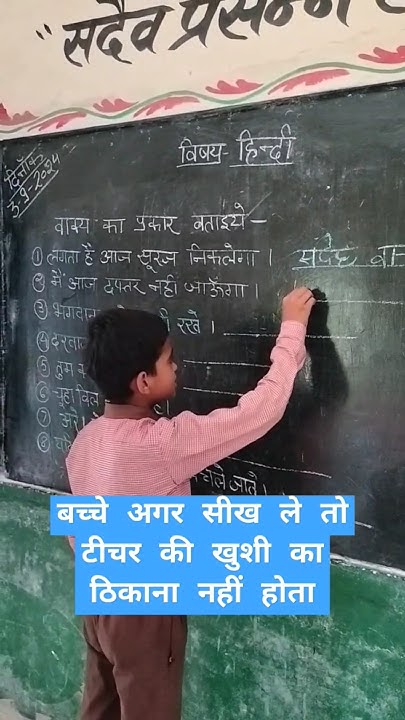 "सदैव प्रसन्न
दिनाँक
3-9-2024
विषय- हिन्दी
वाक्य का प्रकार बताइये -
① लगता है आज सूरज निकलेगा । संदेह वा
② मैं आज दफ्तर नहीं जाऊँगा ।
③ भगवान रखे ।
④
⑤ तुम
⑥ चूहा बिल
⑦ अरे!
⑧
चले जाते ।
बच्चे अगर सीख ले तो
टीचर की खुशी का
ठिकाना नहीं होता